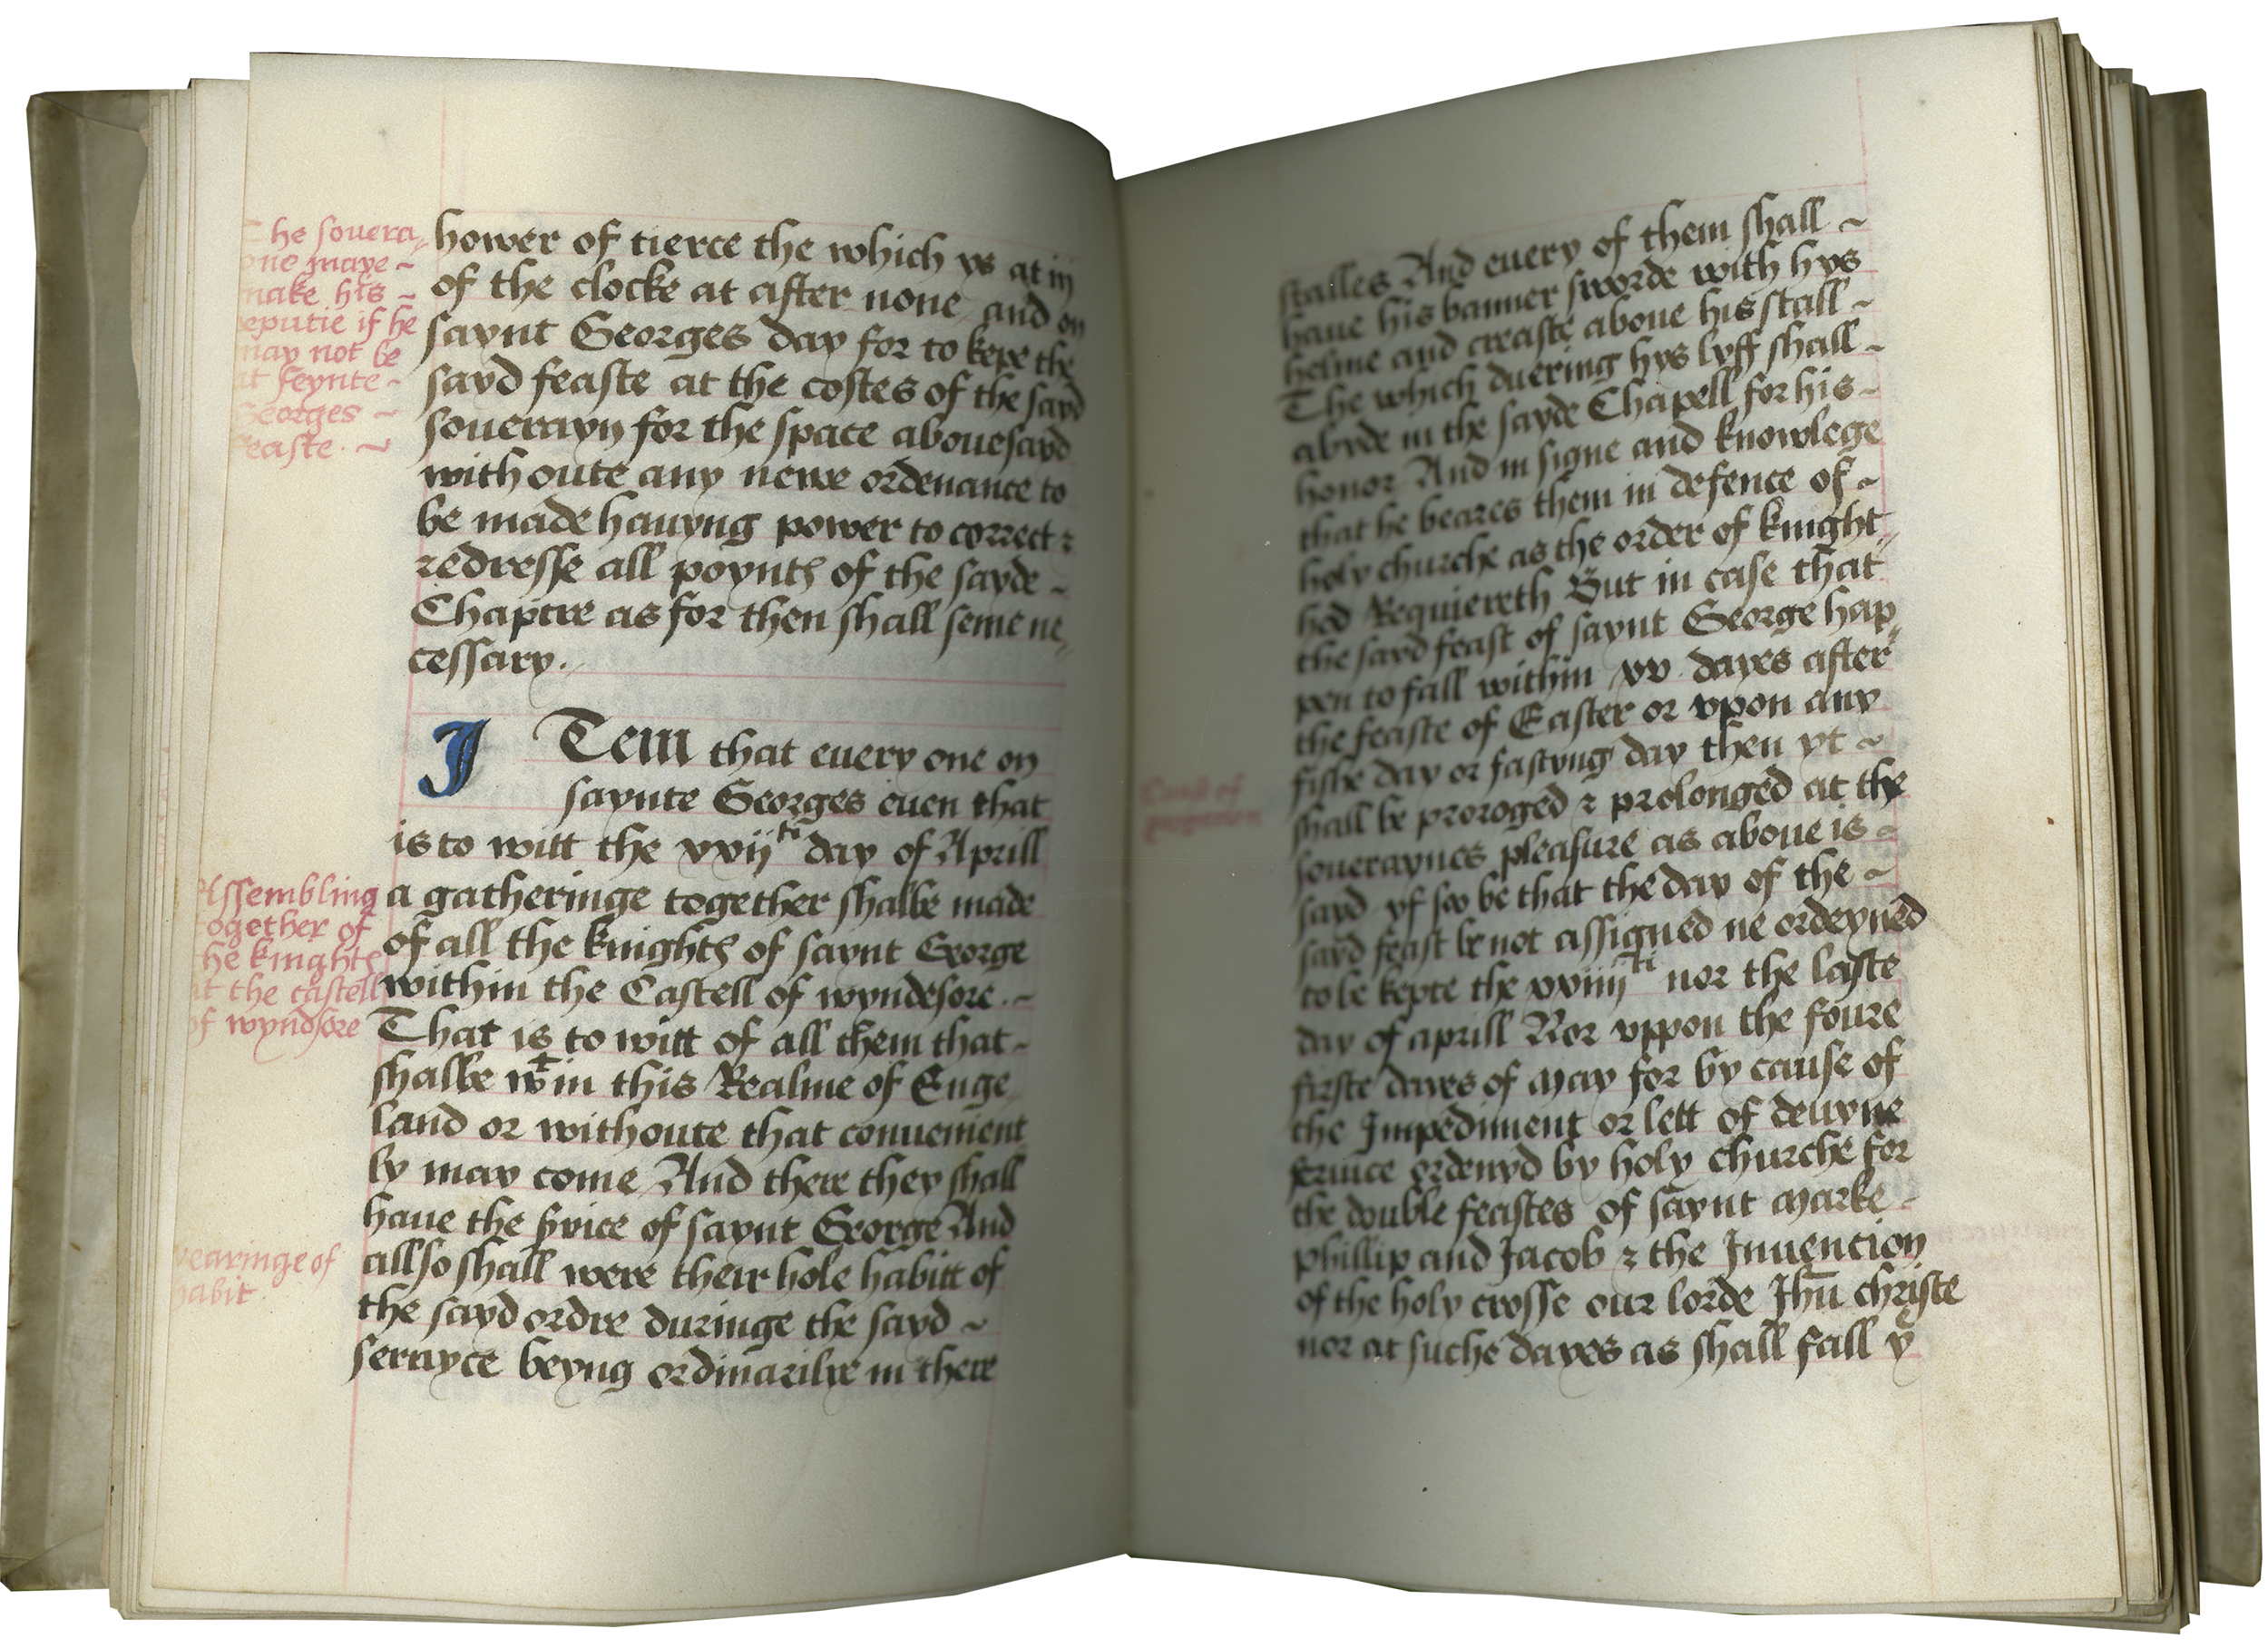 he souera„
one maye ~
make his ~
eputie if he
may not be
at seynte ~
Georges ~
feaste . ~
hower of tierce the which ys at iij
of the clocke at after none and on
saynt Georges day for to kepe the
sayd feaste at the costes of the sayd
souerayn for the space abouesayd
withoute any newe ordenance to
be made hauyng power to correct &
redresse all poyntes of the sayde ~
Chaptre as for then shall seme ne„
cessary .
ITem that euery one on
saynte Georges euen that
is to witt the xxijti day of Aprill
a gatheringe together shalbe made
of all the knightes of saynt George
within the Castell of wyndesore . ~
That is to witt of all them that ~
shalbe wtin this Realme of Enge„
land or withoute that conuenient
ly may come And there they shall
haue the seruice of saynt George And
allso shall were their hole habitt of
the sayd ordre duringe the sayd ~
seruyce beyng ordinarilye in there
Assembling
ogether of
he knightes
at the castell
of wyndsore
wearinge of
habit .
stalles And euery of them shall ~
haue his banner sworde with hys
helme and creaste aboue his stall ~
The which duering hys lyff shall ~
abyde in the sayde Chapell for his ~
honor And in signe and knowlege
that he beares them in defence of ~
holy churche as the order of knight„
hod Requiereth But in case that
the sayd feast of saynt George hap„
pen to fall within xv . dayes after
the feaste of Easter or vpon any
fishe day or fastyng day then yt ~
shall be proroged & prolonged at the
souerayncs pleasure as aboue is ~
sayd yf so be that the day of the ~
sayd feast be not assigned ne ordeyned
to be kepte the xxiiijti nor the laste
day of aprill Nor vppon the foure
firste dayes of may for by cause of
the Impediment or lett of deuyne
seruice ordenyd by holy churche for
the double feastes of saynt marke ~
phillip and Jacob & the Inuencion
of the holy crosse our lorde Jhu christe
nor at suche dayes as shall fall y
of